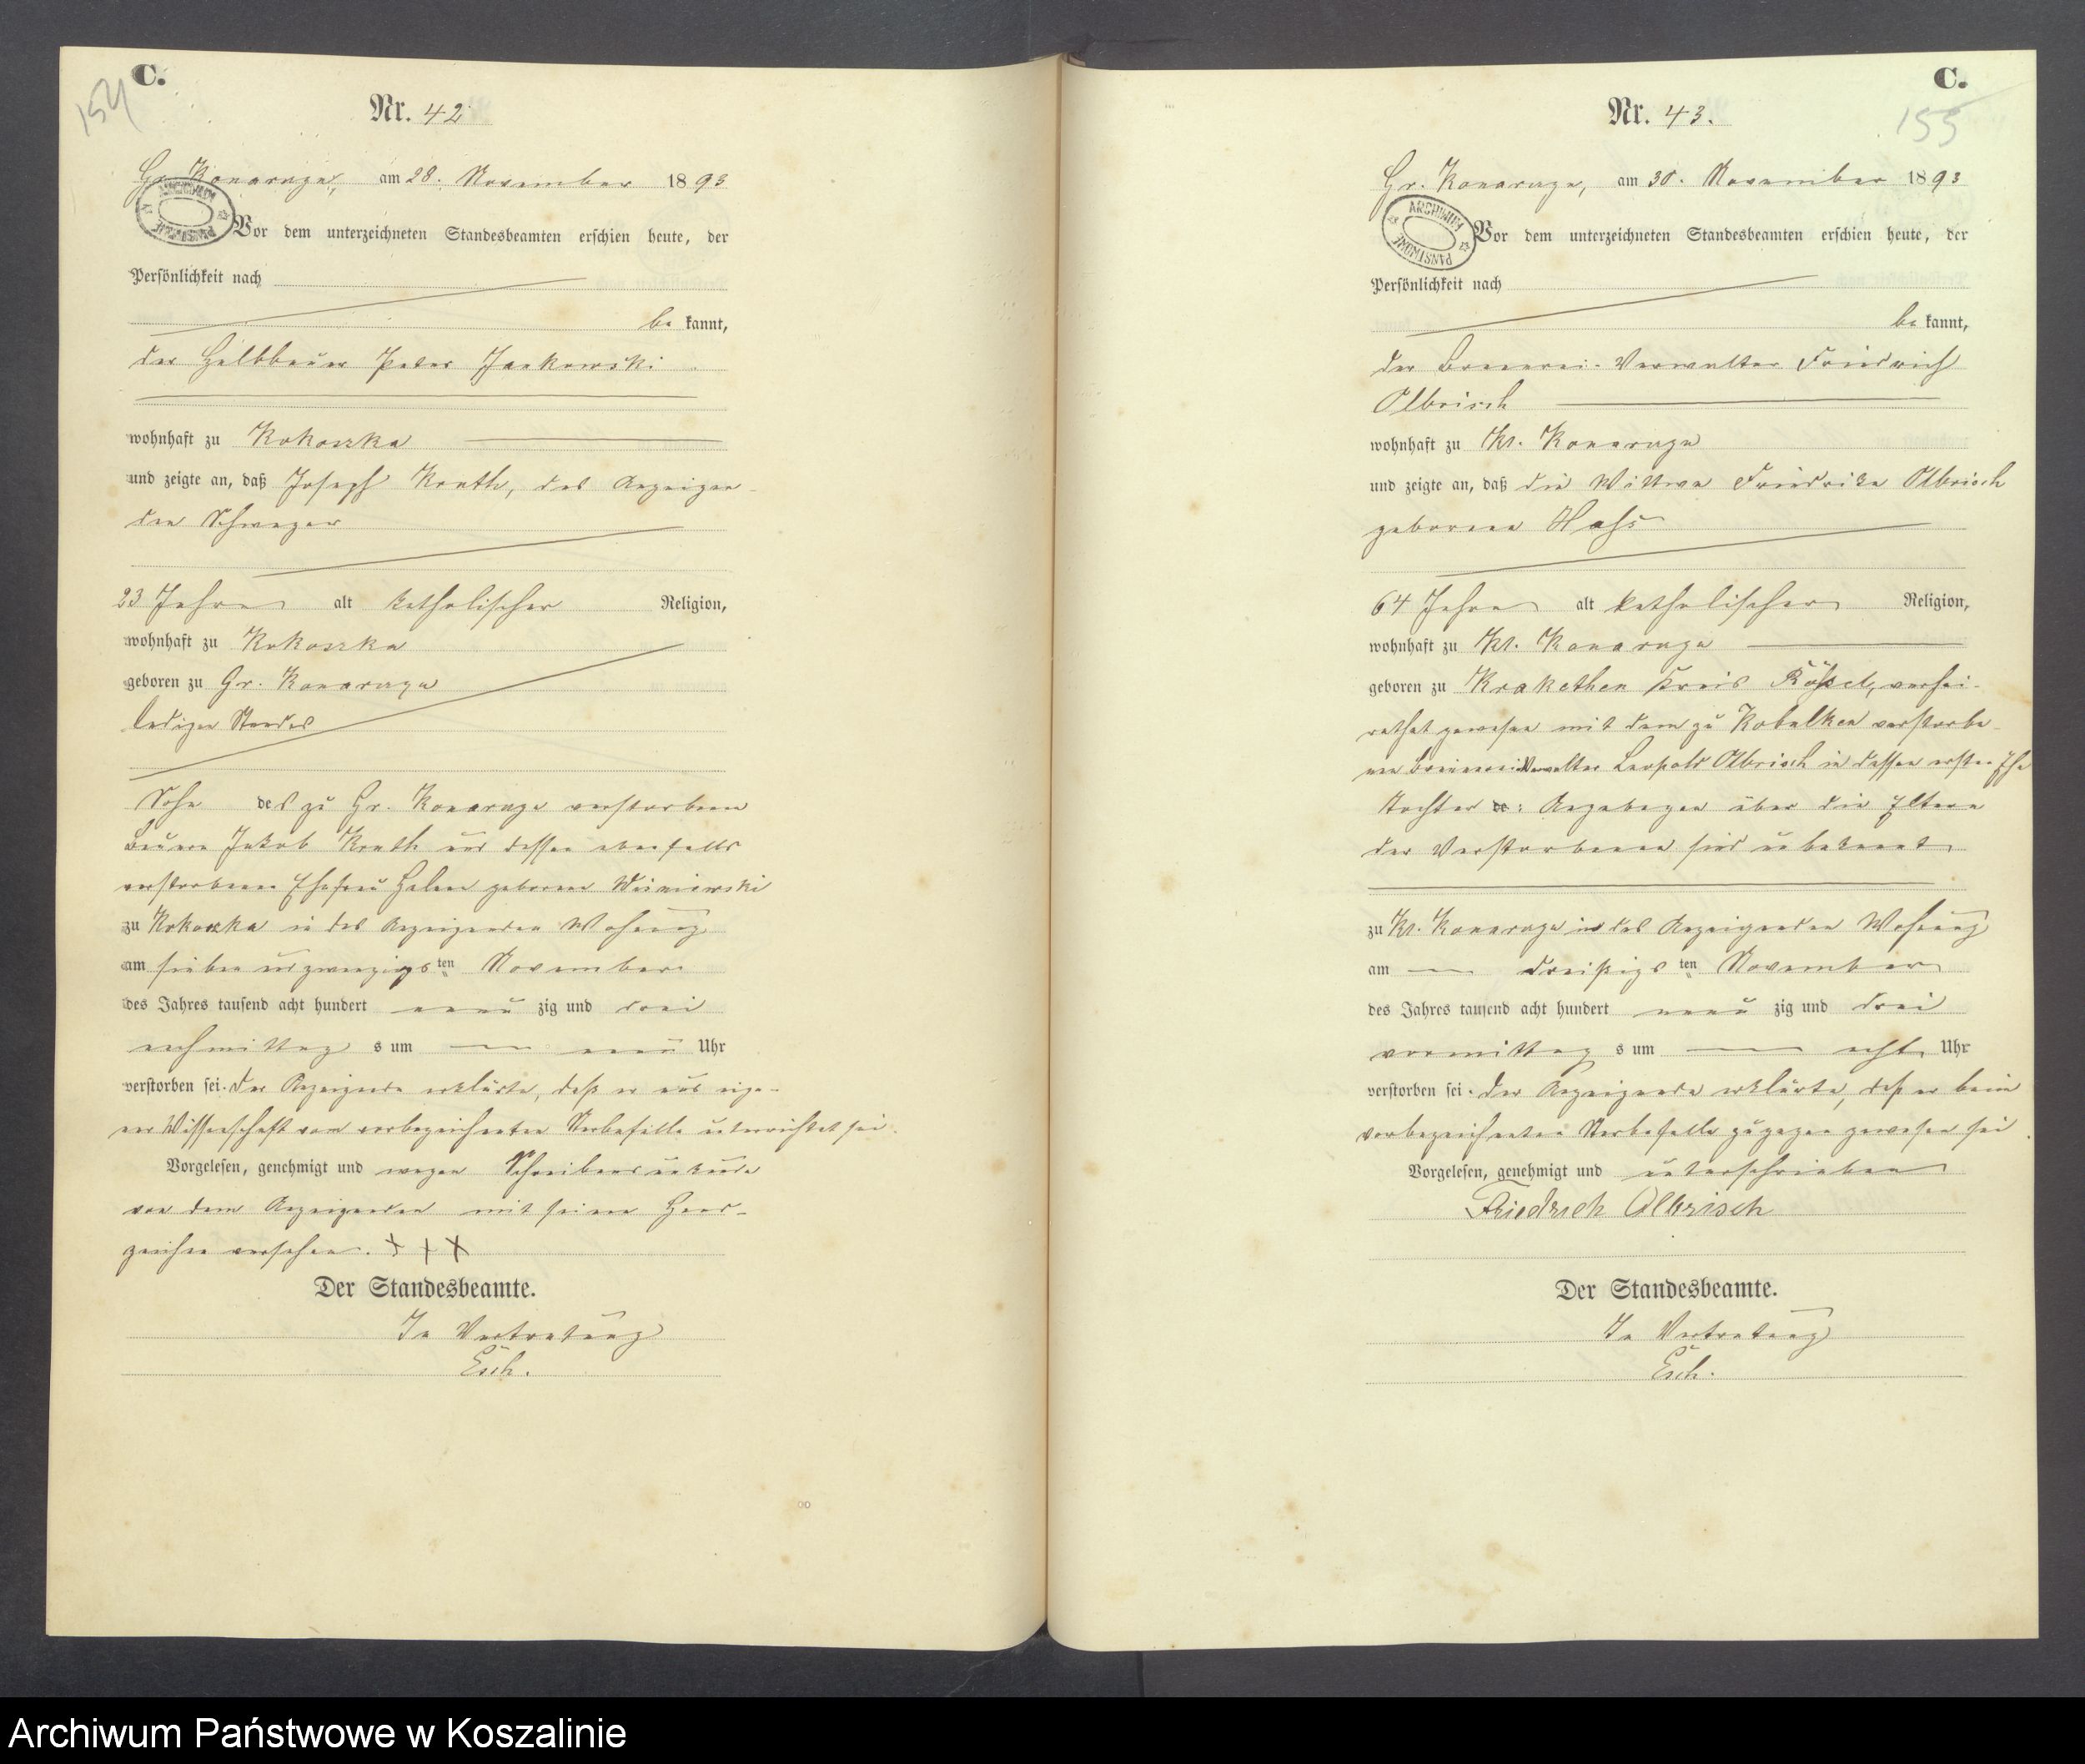 C.
154
Nr. 42
Gr. Konarzyn, am 28. November 1893
ARCHIWUM PAŃSTWOWE
Vor dem unterzeichneten Standesbeamten erschien heute, der
Persönlichkeit nach
be kannt,
der Halbbauer Peter Jankowski
wohnhaft zu Kokoszka
und zeigte an, daß Joseph Knuth, des Anzeigen-
den Schwager
23 Jahre alt katholischer Religion,
wohnhaft zu Kokoszka
geboren zu Gr. Konarzyn
ledigen Standes
Sohn des zu Gr. Konarzyn verstorbenen
Bauern Jakob Knuth und dessen ebenfalls
verstorbenen Ehefrau Helene geborene Wisniewski
zu Kokoszka in des Anzeigenden Wohnung
am sieben und zwanzigsten November
des Jahres tausend acht hundert neun zig und drei
nachmittag s um neun Uhr
verstorben sei. Der Anzeigende erklärte, daß er aus eige-
ner Wissenschaft von vorbezeichneten Sterbefalle unterrichtet sei.
Vorgelesen, genehmigt und wegen Schreibensunkunde
von dem Anzeigenden mit seinem Hand-
zeichen versehen. + + +
Der Standesbeamte.
In Vertretung
Esch.
C.
155
Nr. 43.
Gr. Konarzyn, am 30. November 1893
ARCHIWUM PAŃSTWOWE
Vor dem unterzeichneten Standesbeamten erschien heute, der
Persönlichkeit nach
be kannt,
der Brennerei-Verwalter Friedrich
Olbrisch
wohnhaft zu Kl. Konarzyn
und zeigte an, daß die Wittwe Friedrike Olbrisch
geborene Hass
64 Jahre alt katholischer Religion,
wohnhaft zu Kl. Konarzyn
geboren zu Krakethen Kreis Rößel, verhei-
rathet gewesen mit dem zu Kobulken verstorbe-
nen Brennereiverwalter Leopold Olbrisch in dessen erster Ehe
Tochter de: Angabegen über die Eltern
der Verstorbenen sind unbekannt
zu Kl. Konarzyn in des Anzeigenden Wohnung
am dreißigs ten November
des Jahres tausend acht hundert neun zig und drei
vormittag s um acht Uhr
verstorben sei. Der Anzeigende erklärte, daß er beim
vorbezeichneten Sterbefalle zugegen gewesen sei.
Vorgelesen, genehmigt und unterschrieben
Friedrich Olbrisch
Der Standesbeamte.
In Vertretung
Esch.
Archiwum Państwowe w Koszalinie